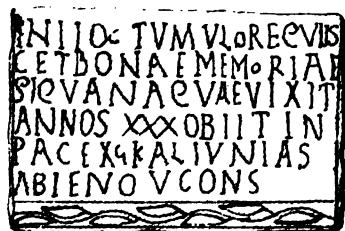 IN HOC TVMVLO REQVIIS
CET BONAE MEMORIAE
SIQVANA QVAE VIXIT
ANNOS XXX OBIIT IN
PACE X KALIVNIAS
ABIENO VCONS